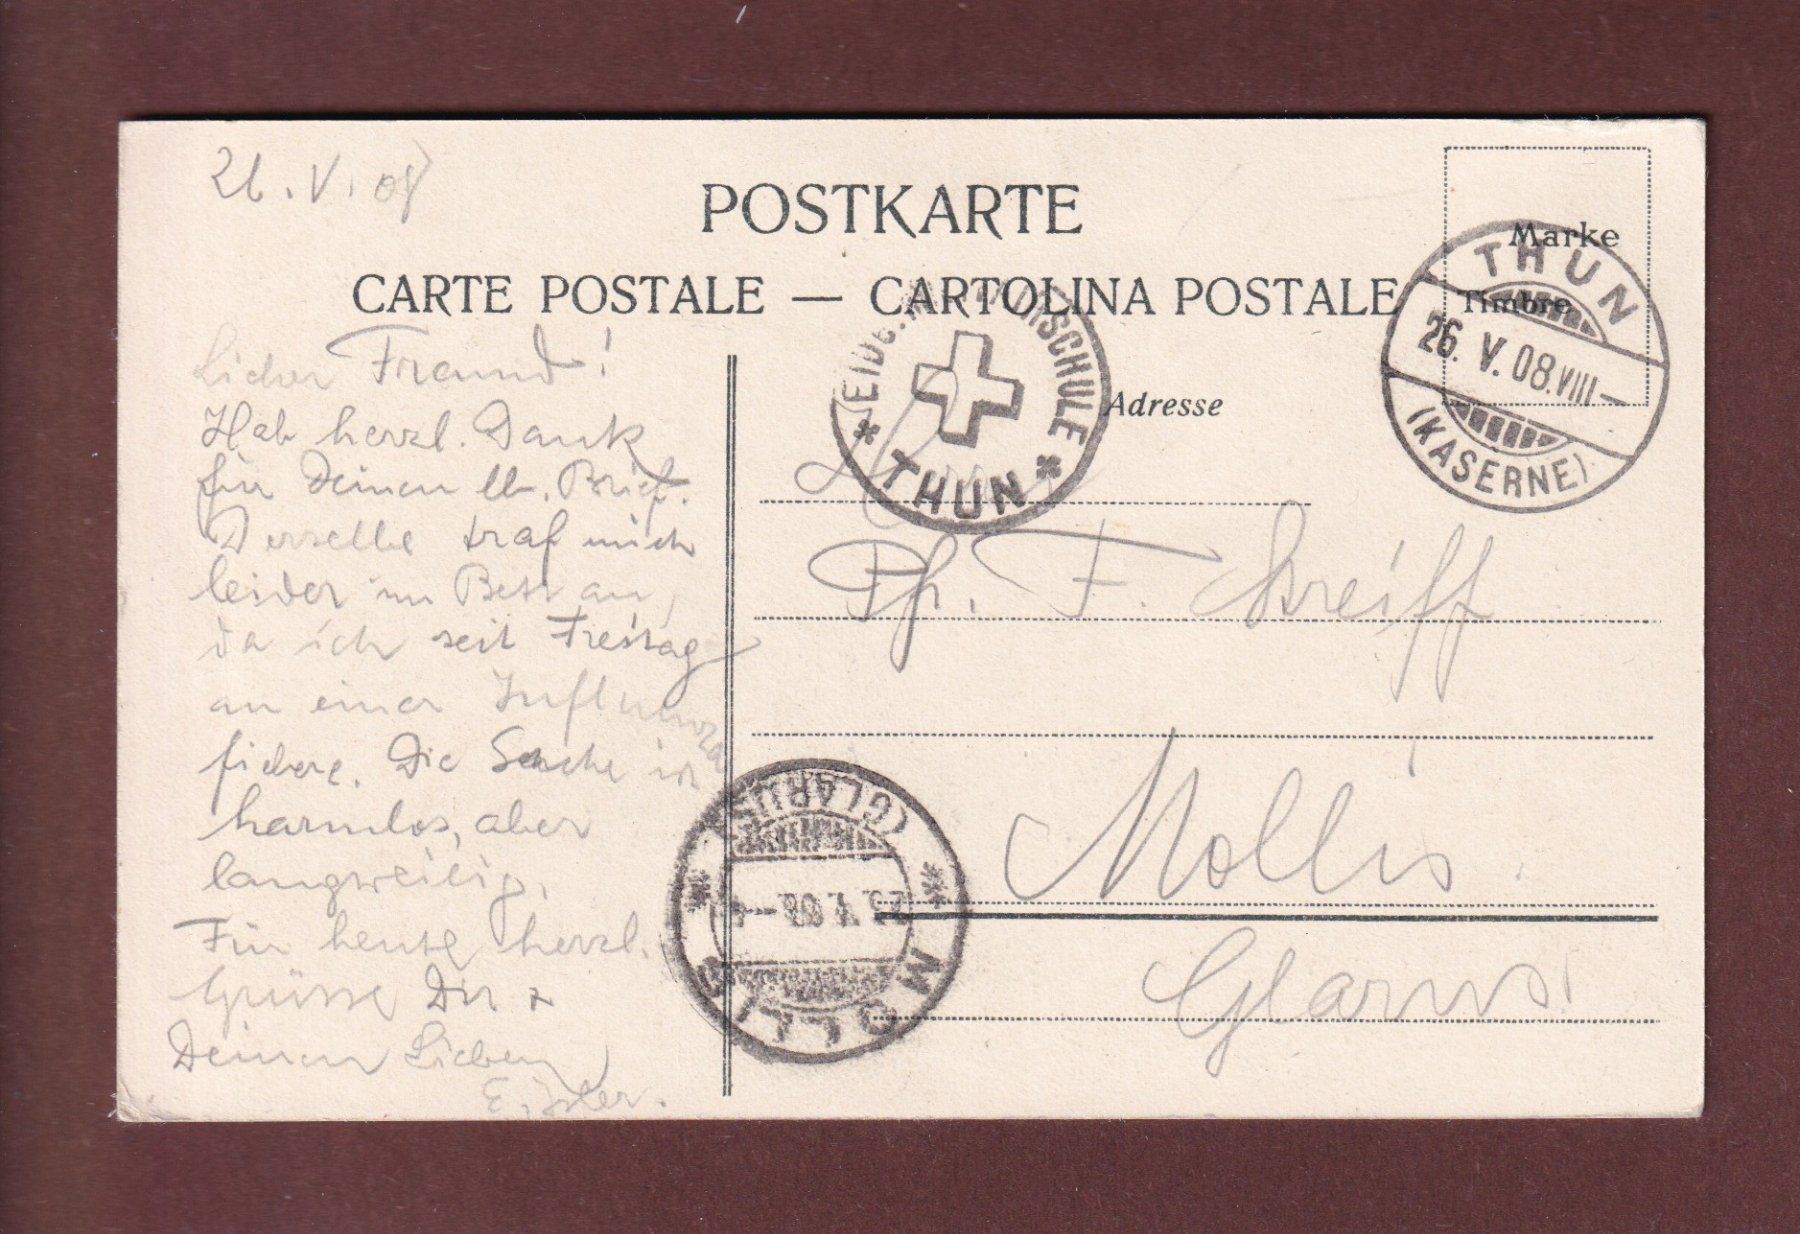 26.V.08
POSTKARTE
CARTE POSTALE — CARTOLINA POSTALE
Marke
Timbre
THUN
26. V. 08. VIII—
(KASERNE)
EIDG. SCHULE
THUN
Adresse
Lieber Freund!
Hab herzl. Dank
für Deinen lb. Brief.
Derselbe traf mich
leider im Bett an,
da ich seit Freitag
an einer Influenza
fiebere. Die Sache ist
harmlos, aber
langweilig.
Für heute herzl.
Grüsse Dir &
Deinen Lieben
Hrn
Ph. F. Streiff
Mollis.
Glarus.
MOLLIS
V. 08
(GLARUS)